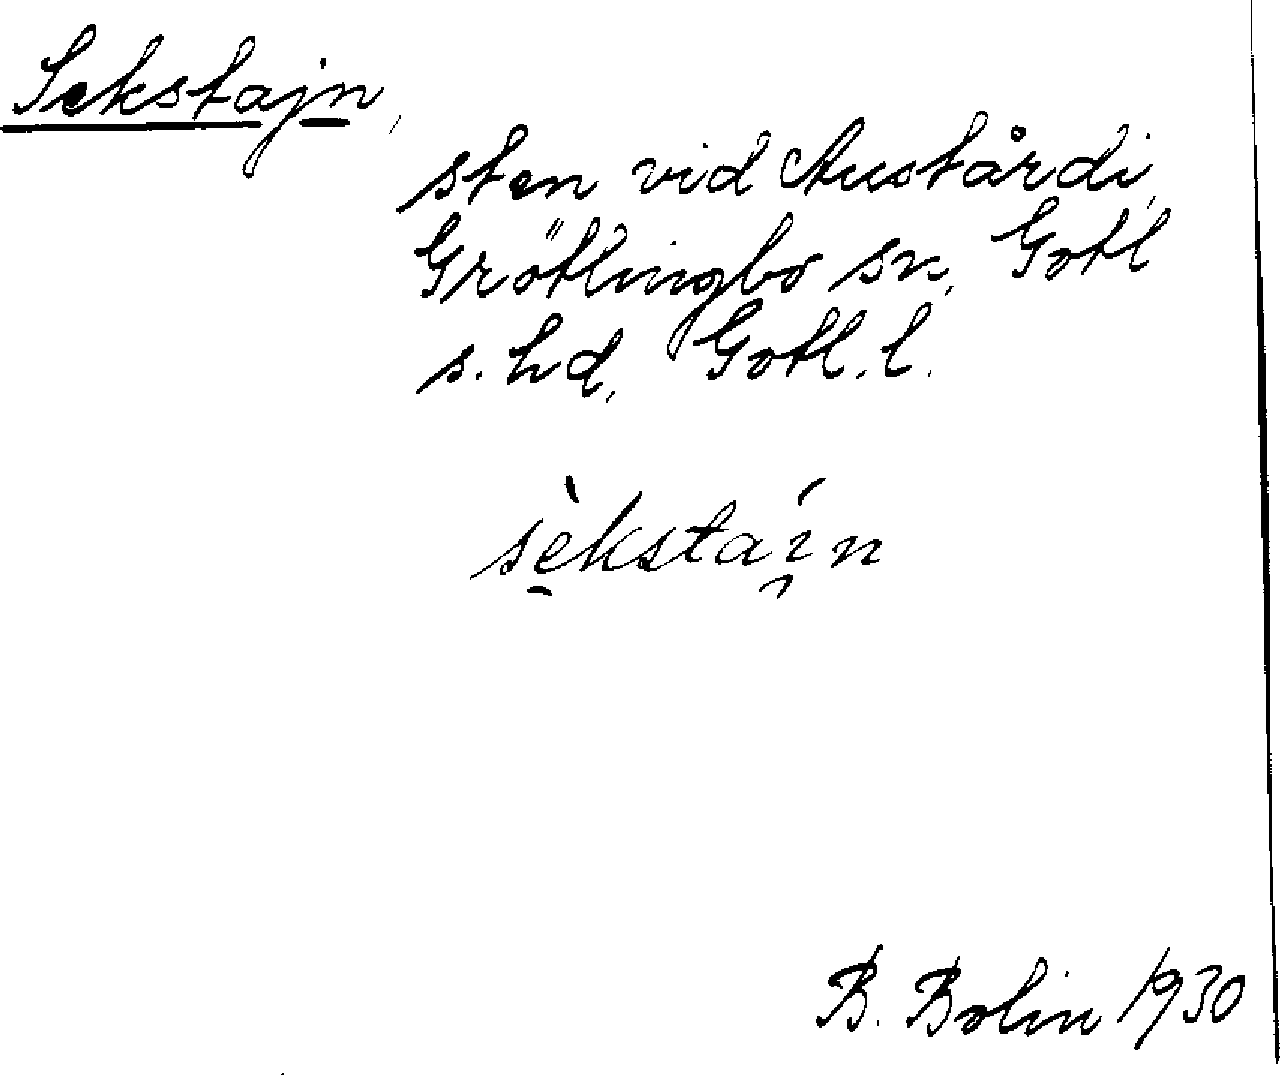 Sekstajn,
sten vid Austårdi,
Grötlingbo sn, Gotl
s. hd, Gotl. l.
sèkstaı́n
B. Bolin 1930